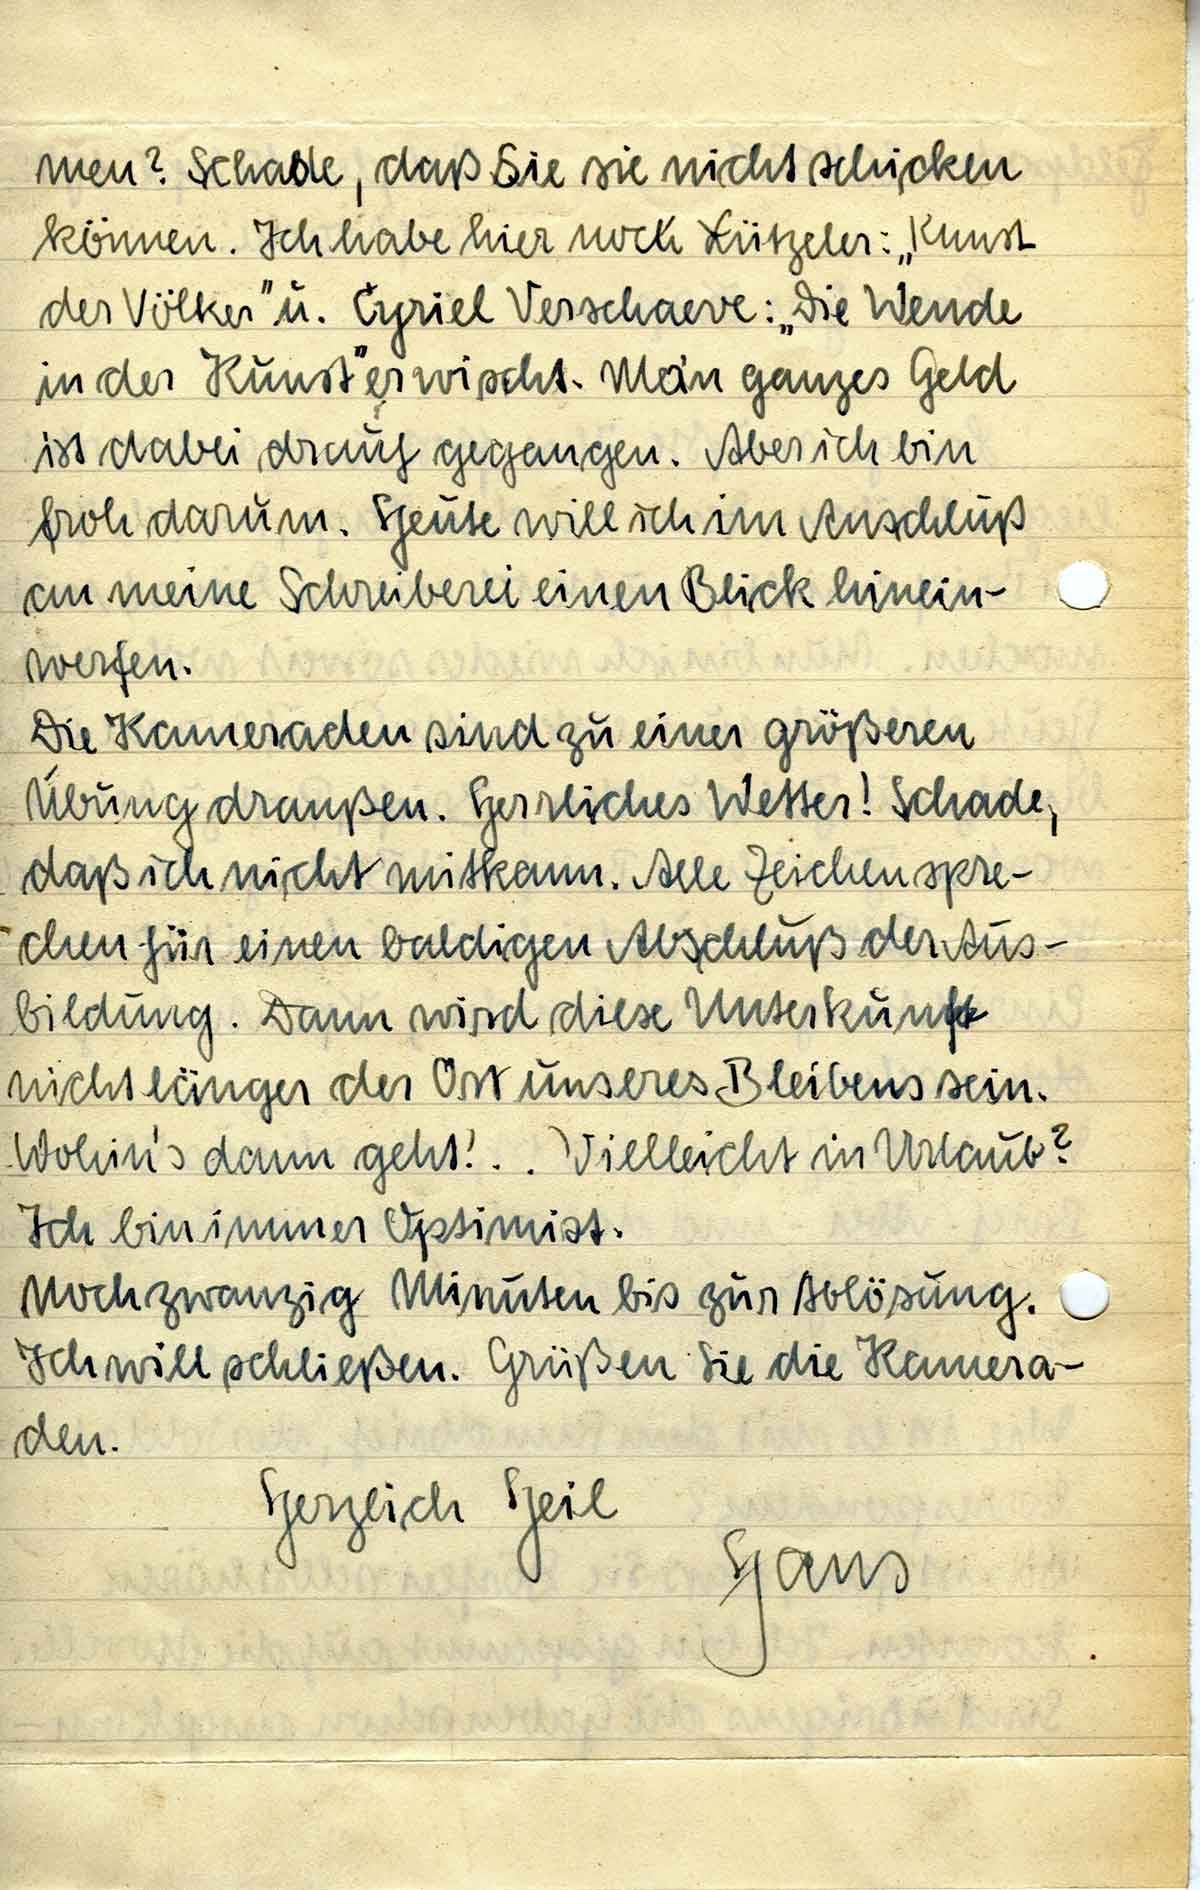 men? Schade, daß Sie sie nicht schicken
können. Ich habe hier noch Lützeler: „Kunst
der Völker" u. Cyriel Verschaeve: „Die Wende
in der Kunst" erwischt. Mein ganzes Geld
ist dabei drauf gegangen. Aber ich bin
froh darum. Heute will ich im Anschluß
an meine Schreiberei einen Blick hinein-
werfen.
Die Kameraden sind zu einer größeren
Übung draußen. Herrliches Wetter! Schade,
daß ich nicht mitkann. Alle Zeichen spre-
chen für einen baldigen Abschluß der Aus-
bildung. Dann wird diese Unterkunft
nicht länger der Ort unseres Bleibens sein.
Wohin's dann geht!.. Vielleicht in Urlaub?
Ich bin immer Optimist.
Noch zwanzig Minuten bis zur Ablösung.
Ich will schließen. Grüßen Sie die Kamera-
den.
Herzlich Heil
Hans